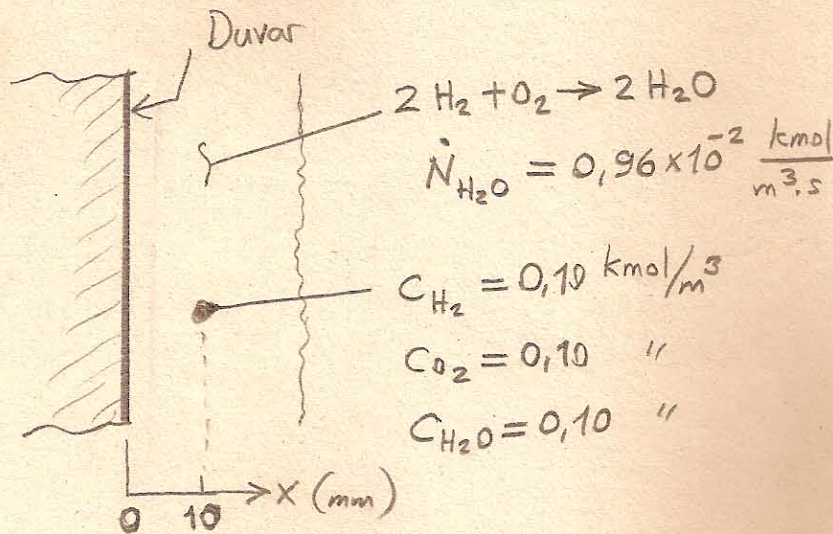 Duvar
2 H₂ + O₂ → 2 H₂O
Ṅ_H₂O = 0,96×10⁻² kmol/m³.s
C_H₂ = 0,10 kmol/m³
C_O₂ = 0,10 "
C_H₂O = 0,10 "
0 10 X (mm)